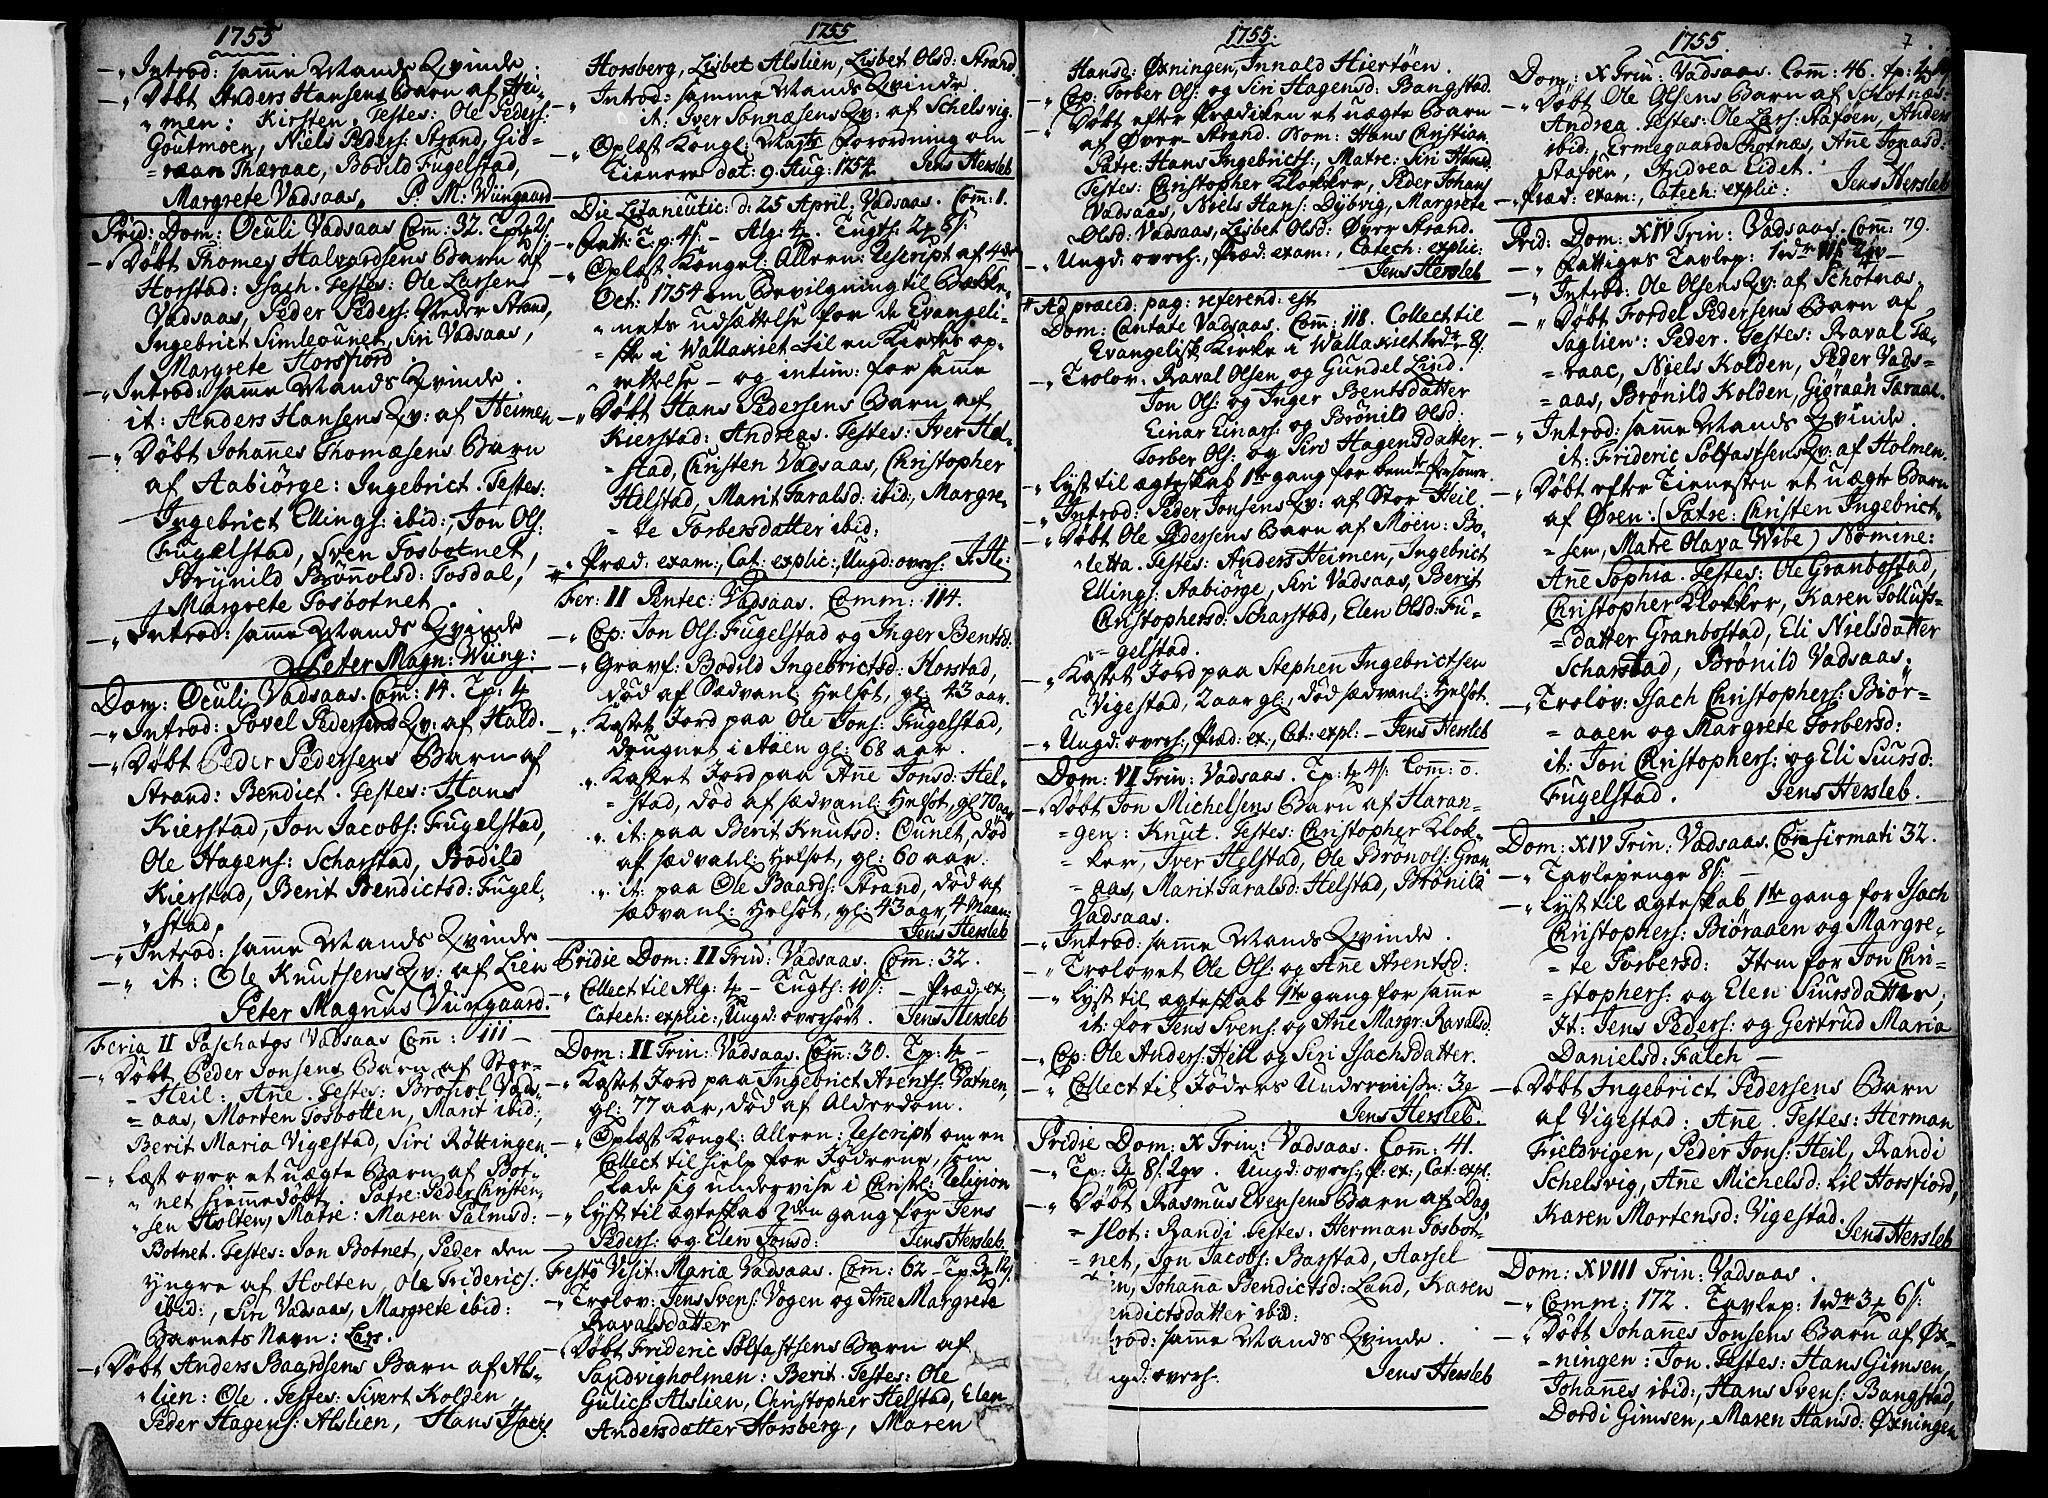 1755
-" Introd: samme Mands Qvinde.
-" Døbt Anders Hansens Barn af Hei-
" men: Kirsten. Testes: Ole Peders:
Goutmoen, Niels Peders: Strand, Giø-
= raan Thæraac, Bodild Fugelstad,
Margrete Vadsaas, P. M. Wiingaard
Prid: Dom: Oculi Vadsaas Com: 32.
-" Døbt Thomes Halvardsens Barn af
Horstad: Isach. Testes: Ole Larsens
Vadsaas, Peder Peders: Strand,
Ingebrict Simleounet, Siri Vadsaas,
Margrete Horsfiord
-" Introd: samme Mands Qvinde.
it: Anders Hansens Qv: af Heimen
-" Døbt Johannes Thomæsens Barn
af Aabiørge: Ingebrict. Testes:
Ingebrict Ellings: ibid:, Jon Ols:
Fugelstad, Sven Tosbotnet,
Brynild Brønnolsd: Tosdal,
Margrete Tosbotnet.
-" Introd: samme Mands Qvinde
Peter Magn: Wiing:
Dom: Oculi Vadsaas. Com: 14. Tp: 4
-" Introd: Povel Pedersens Qv: af Hald.
-" Døbt Peder Pedersens Barn af
Strand: Bendict. Testes: Hans
Kierstad, Jon Jacobs: Fugelstad,
Ole Hagens: Scharstad, Bodild
Kierstad, Berit Bendictsd: Fugel-
" stad,
-" Introd: samme Mands Qvinde
-" it: Ole Knutsens Qv: af Lien
Peter Magnus Viingaard.
Feria II Paschatos Vadsaas Com: 111 -
-" Døbt Peder Jonsens Barn af Stor-
- Heil: Anne. Testes: Brøniol Vads-
= aas, Morten Tosbotten, Marit ibid:,
Berit Maria Vigestad, Siri Røttingen
-" Læst over et uægte Barn af Bot-
" net hiemmedøbt. Patre: Peder Christen-
" sen Holten, Matre: Maren Palmsd:
Botnet. Testes: Jon Botnet, Peder den
yngre af Holten, Ole Frideries:
ibid:, Siri Vadsaas, Margrete ibid:
Barnets Navn: Lars.
-" Døbt Anders Baardsens Barn af Als-
" lien: Ole. Testes: Sivert Kolden
Peder Hagens: Alslien, Hans Isachs:
1755
Horsberg, Lisbet Alslien, Lisbet Olsd: Strand.
-" Introd: samme Mands Qvinde.
it: Iver Sonnæsens Qv: af Schelsvig.
-" Oplæst Kongl: Majts Forordning om
Tienere dat: 9 Aug: 1754. Jens Hersleb
Die Litaneutic: d: 25 April. Vadsaas. Com: 1.
-" Fatt: Tp: 4 s. - Alg: 4. Tugts: 2 8 s.
-" Oplæst Kongel: Allern: Rescript af 4de
Oct: 1754 om Bevilgning til Bække-
" nets udsættelse for de Evangeli-
= ske i Wallakiet til en Kirkes op-
" rettelse - og intim: for samme
-" Døbt Hans Pedersens Barn af
Kierstad: Andreas. Testes: Iver Hel-
= stad, Christen Vadsaas, Christopher
Helstad, Marit Taralsd: ibid:, Margre-
= te Torbersdatter ibid:
-" Præd: exam:, Cat: explic:, Ungd: overh: J. H:
Fer: II Pentec: Vadsaas. Comm: 114.
-" Cop: Jon Ols: Fugelstad og Inger Bentsd:
-" Gravf: Bodild Ingebrictsd: Horstad,
død af Sædvanl: Helsot, gl: 43 aar.
-" Kastet Jord paa Ole Jons: Fugelstad,
drugnet i Aaen gl: 68 aar.
" Kastet Jord paa Anne Jonsd: Hel-
= stad, død af sædvanl: Helsot, gl: 70 aar
" it: paa Berit Knutsd: Ounet, død
af sædvanl: Helsot, gl: 60 aar.
" it: paa Ole Baards: Strand, død af
sædvanl: Helsot, gl: 43 aar, 4 Maan:
Jens Hersleb
Pridie Dom: II Trin: Vadsaas. Comm: 32.
-" Collect til Alg: 4 - Tugts: 10 s: - Præd: ex:
Catech: explic:, Ungd: overhørt. Jens Hersleb
Dom: II Trin: Vadsaas. Comm: 30. Tp: 4 -
-" Kastet Jord paa Ingebrict Arents: Vatnen,
gl: 77 aar, død af Alderdom.
-" Oplæst Kongl: Allern: Rescript om en
Collect til hielp for Jøderne, som
lade sig undervise i Christel: Religion
-" Lyst til ægteskab 2den gang for Jens
Peders: og Elen Jonsd: Jens Hersleb.
Festo Visit: Mariæ Vadsaas. Comm: 62 - Tp: 12 s.
-" Trolov: Jens Svens: Vogen og Anne Margrete
Ravalsdatter
-" Døbt Frideric Solfastsens Barn af
Sandvigholmen: Berit. Testes: Ole
Gulics: Alslien, Christopher Helstad, Elen
Andersdatter Horsberg, Maren
1755.
Hansd: Øxningen, Innald Hiertøen.
-" Cop: Torber Ols: og Siri Hagensd: Bangstad.
-" Døbt efter Prædiken et uægte Barn
af Øver-Strand. Nom: Hans Cristian.
Patre: Hans Ingebricts:, Matre: Siri Hansd:
Testes: Christopher Klokker, Peder Johans
Vadsaas, Niels Hans: Dybvig, Margrete
Olsd: Vadsaas, Lisbet Olsd: Øver Strand.
-" Ungd: overh:, Præd: exam:, Catech: explic:
Jens Hersleb
# Ad præced: pag: referend: est
Dom: Cantate Vadsaas. Comm: 118. Collect til
Evangelisk Kirke i Wallakiet 1 rdr 8 s.
-" Trolov. Raval Olsen og Gundel Lind.
Jon Ols: og Inger Bentsdatter
Einar Einars: og Brønild Olsd:
Torber Ols: og Siri Hagensdatter.
-" Lyst til ægteskab 1te gang for bemte Personer
-" Introd: Peder Jonsens Qv: af Stor Heil
-" Døbt Ole Pedersens Barn af Moen: Bo-
" letta. Testes: Anders Heimen, Ingebrict
Ellings: Aabiørge, Siri Vadsaas, Berit
Christophersd: Scharstad, Elen Olsd: Fu-
= gelstad.
-" Kastet Jord paa Stephen Ingebrictsen
Vigestad, 2 aar gl:, død sædvanl: Helsot.
-" Ungd: overh:, Præd: ex:, Cat: expl: - Jens Hersleb
Dom: VI Trin: Vadsaas. Tp: 4 s: Comm: 0.
- Døbt Jon Michelsens Barn af Haran-
= gen: Knut. Testes: Christopher Klok-
= ker, Iver Helstad, Ole Brønols: Gran
= aas, Marit Taralsd: Helstad, Brønild
Vadsaas.
-" Introd: samme Mands Qvinde.
-" Trolovet Ole Ols: og Anne Arentsd:
-" Lyst til ægteskab 1te gang for samme
it: for Jens Svens: og Ane Margr: Ravalsd:
-" Cop: Ole Anders: Heil og Siri Isachsdatter.
-" Collect til Jøders Underviisn: 3
Jens Hersleb.
Pridie Dom: X Trin: Vadsaas. Comm: 41.
-" Tp: 8 s. Ungd: overh:, P: ex:, Cat: expl:
-" Døbt Rasmus Evensens Barn af Dag
= slot: Randi. Testes: Herman Tosbot
= net, Jon Jacobs: Barstad, Aarsel
Johanna Bendictsd: Land, Karen
endictsdatter ibid:
rod: samme Mands Qvinde.
gd: overh: Jens Hersleb
1755. 7
Dom: X Trin: Vadsaas. Comm: 46. Tp:
-" Døbt Ole Olsens Barn af Schotnæs:
Andrea. Testes: Ole Lars: Staføen, Anders
ibid:, Ermegaard Schotnæs, Anne Jonasd:
Staføen, Andrea Eidet.
-" Præd: exam:, Catech: explic: Jens Hersleb
Prid: Dom: XIV Trin: Vadsaas. Comm: 79.
-" Fattiges Tavlep: 1 rdr
-" Introd: Ole Olsens Qv: af Schotnæs
-" Døbt Fordel Pedersens Barn af
Saglien: Peder. Testes: Raval Tæ-
= raac, Niels Kolden, Peder Vads-
= aas, Brønild Kolden, Giøraan Taraac.
-" Introd: samme Mands Qvinde.
it: Frideric Solfastsens Qv: af Holmen.
-" Døbt efter Tienesten et uægte Barn
af Øren: (Patre: Christen Ingebrict-
= sen, Matre Olava Wibe) Nomine:
Anne Sophia. Testes: Ole Granbostad,
Christopher Klokker, Karen Tollufs-
= datter Granbostad, Eli Nielsdatter
Scharstad, Brønild Vadsaas.
-" Trolov: Isach Christophers: Biør-
= aaen og Margrete Torbersd:
it: Jon Christophers: og Eli Siursd:
Fugelstad. Jens Hersleb.
Dom: XIV Trin: Vadsaas. Confirmati 32.
-" Tavlepenge 8 s: -
-" Lyst til ægteskab 1te gang for Isach
Christophers: Biøraaen og Margre-
= te Torbersd: Item for Jon Chri-
= stophers: og Elen Siursdatter,
It: Jens Peders: og Gertrud Maria
Danielsd: Falch -
-" Døbt Ingebrict Pedersens Barn
af Vigestad: Anne. Testes: Herman
Fieldvigen, Peder Jons: Heil, Randi
Schelsvig, Anne Michelsd: lil Horsfiord,
Karen Mortensd: Vigestad.
Jens Hersleb
Dom: XVIII Trin: Vadsaas.
-" Comm: 172. Tavlep: 1 rdr 3 6 s.
-" Døbt Johannes Jonsens Barn af Øx-
= ningen: Jon. Testes: Hans Gimsen,
Johannes ibid:, Hans Svens: Bangstad,
Dordi Gimsen, Maren Hansd: Øxningen